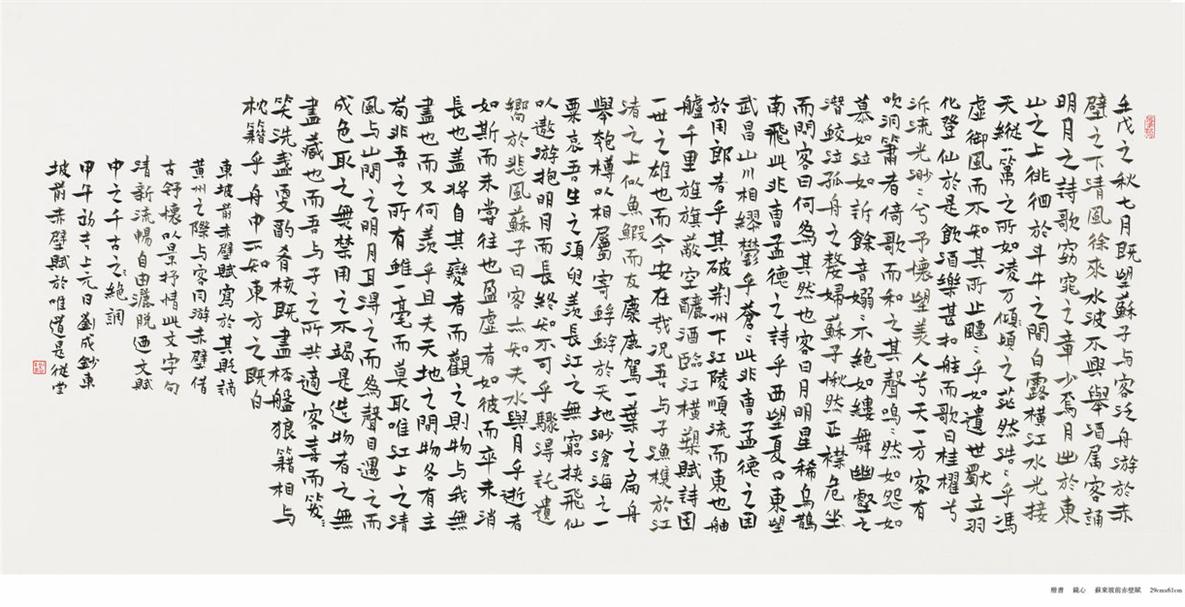 壬戌之秋七月既望蘇子与客泛舟游於赤
壁之下清風徐來水波不興舉酒属客誦
明月之詩歌窈窕之章少焉月出於東
山之上徘徊於斗牛之間白露橫江水光接
天縱一葦之所如凌万頃之茫然浩〻乎馮
虛御風而不知其所止飄〻乎如遺世獨立羽
化登仙於是飲酒樂甚扣舷而歌曰桂櫂兮
泝流光渺〻兮予懷望美人兮天一方客有
吹洞簫者倚歌而和之其聲嗚〻然如怨如
慕如泣如訴餘音嫋〻不絕如縷舞幽壑之
潛蛟泣孤舟之嫠婦蘇子愀然正襟危坐
而問客曰何為其然也客曰月明星稀烏鵲
南飛此非曹孟德之詩乎西望夏口東望
武昌山川相繆鬱乎蒼〻此非曹孟德之困
於周郎者乎其破荆州下江陵順流而東也舳
艫千里旌旗蔽空釃酒臨江橫槊賦詩固
一世之雄也而今安在哉况吾与子漁樵於江
渚之上侣魚鰕而友麋鹿駕一葉之扁舟
舉匏樽以相屬寄蜉蝣於天地渺滄海之一
粟哀吾生之須臾羡長江之無窮挾飛仙
以遨游抱明月而長終知不可乎驟得託遺
響於悲風蘇子曰客亦知夫水與月乎逝者
如斯而未嘗往也盈虛者如彼而卒未消
長也盖將自其變者而觀之則物与我無
盡也而又何羡乎且夫天地之間物各有主
苟非吾之所有雖一毫而莫取唯江上之清
風与山間之明月耳得之而為聲目遇之而
成色取之無禁用之不竭是造物者之無
盡藏也而吾与子之所共適客喜而笑〻
笑洗盞更酌肴核既盡杯盤狼籍相与
枕籍乎舟中不知東方之既白
東坡前赤壁賦寫於其貶謫
黃州之際与客同游赤壁借
古舒懷以景抒情此文字句
清新流暢自由灑脱迺文賦
中之千古之〻絕調
甲午初春上元日劉成鈔東
坡前赤壁賦於唯道是從堂
楷書 鏡心 蘇東坡前赤壁賦 29cmx61cm